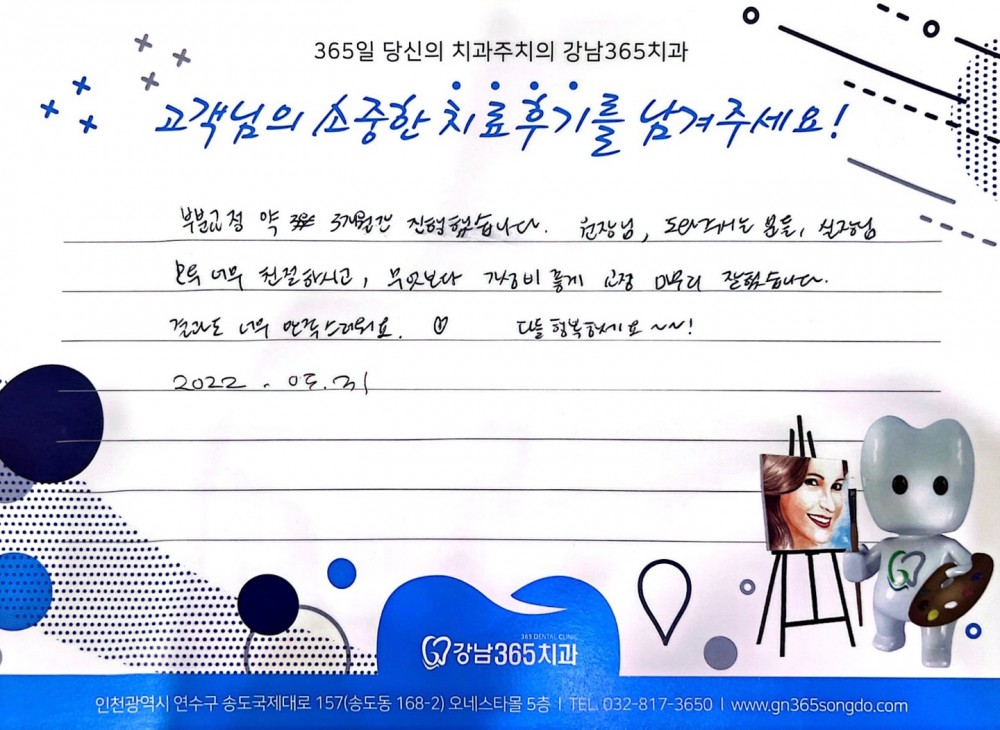 365일 당신의 치과주치의 강남365치과
고객님의 소중한 치료후기를 남겨주세요!
부분교정 약 3개월간 진행했습니다. 원장님, 도와주시는 분들, 실장님
모두 너무 친절하시고, 무엇보다 가성비 좋게 교정 마무리 잘했습니다.
결과도 너무 만족스러워요. ♡ 다들 행복하세요 ~~!
2022. 05. 31
365 DENTAL CLINIC
강남365치과
인천광역시 연수구 송도국제대로 157(송도동 168-2) 오네스타몰 5층 | TEL. 032-817-3650 | www.gn365songdo.com